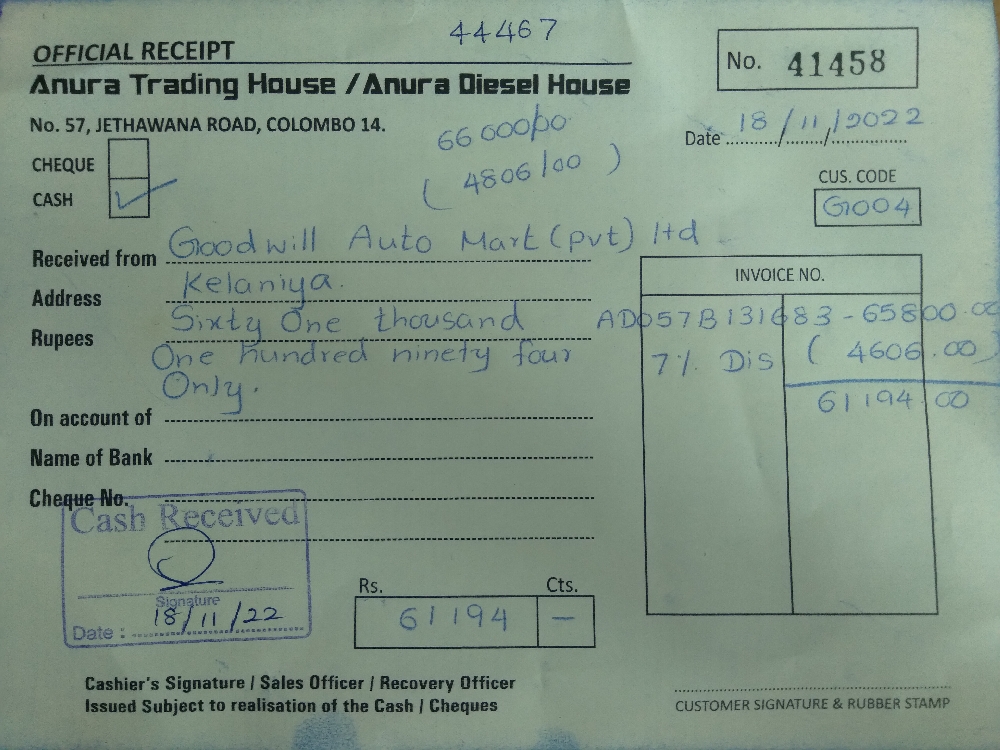 44467
OFFICIAL RECEIPT
No. 41458
Anura Trading House / Anura Diesel House
No. 57, JETHAWANA ROAD, COLOMBO 14.
66000/00
Date 18/11/2022
(4806/00)
CHEQUE
CASH ✓
CUS. CODE
G1004
Received from Goodwill Auto Mart (pvt) ltd
INVOICE NO.
Address Kelaniya.
Rupees Sixty One thousand
AD057B131683 - 65800.00
One hundred ninety four
7% Dis (4606.00)
Only.
61194.00
On account of
Name of Bank
Cheque No.
Cash Received
Signature
Date : 18/11/22
Rs. Cts.
61194 —
Cashier's Signature / Sales Officer / Recovery Officer
Issued Subject to realisation of the Cash / Cheques
CUSTOMER SIGNATURE & RUBBER STAMP